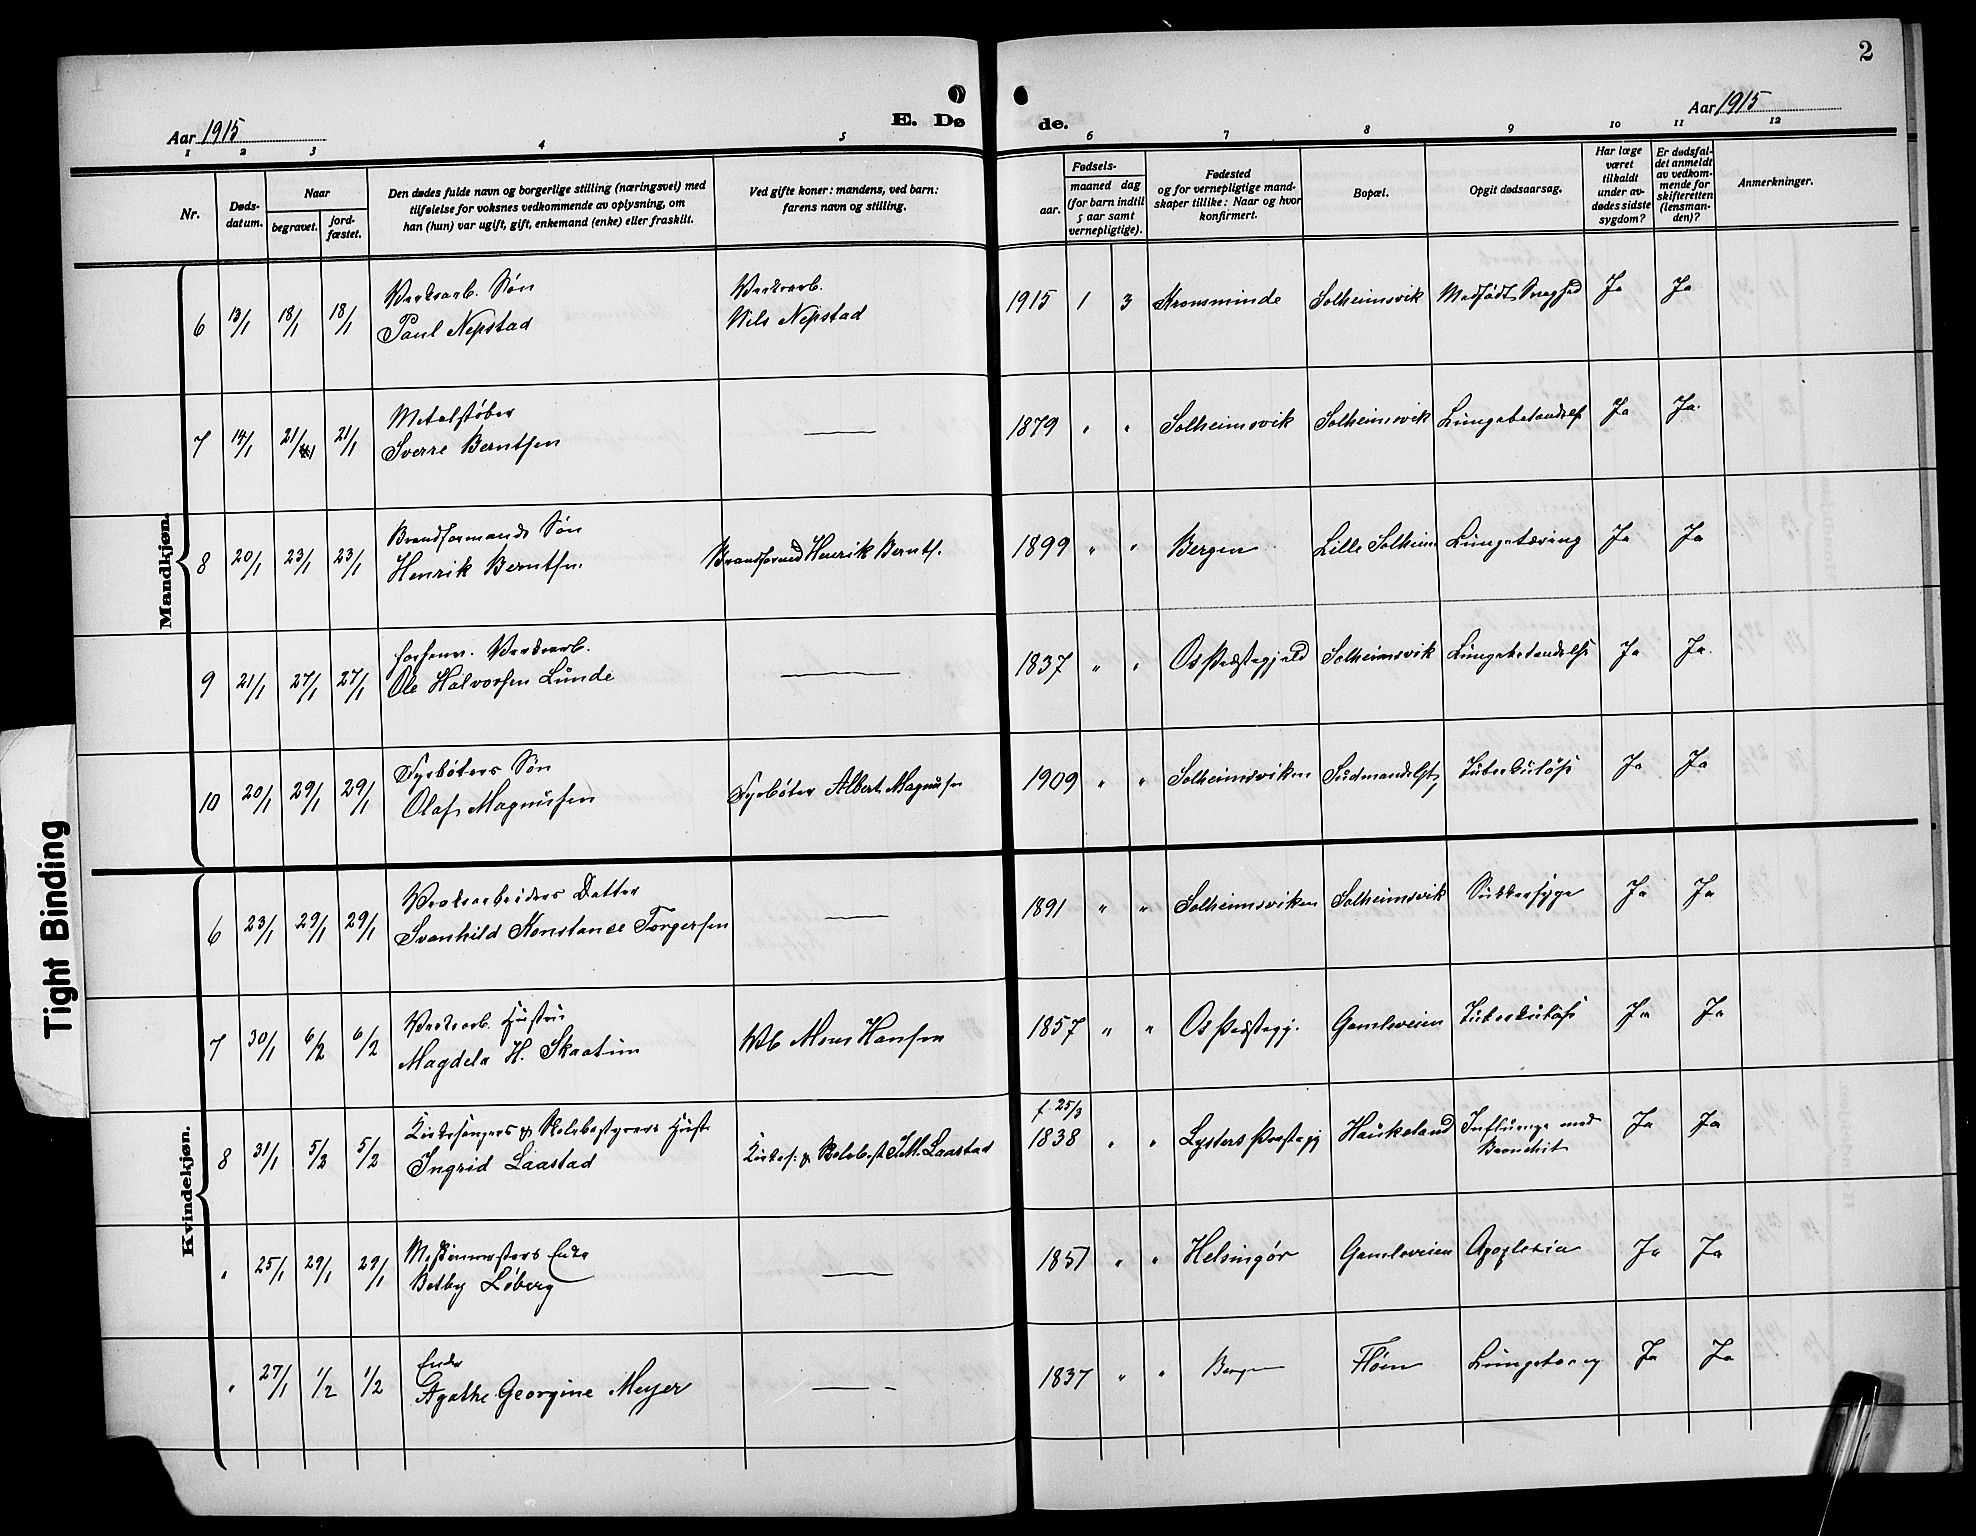 2
Aar 1915
E. Dø
de.
Aar 1915
1 2 3 4 5 6 7 8 9 10 11 12
Nr.
Døds-
datum.
Naar
begravet.
jord-
fæstet.
Den dødes fulde navn og borgerlige stilling (næringsvei) med
tilføielse for voksnes vedkommende av oplysning, om
han (hun) var ugift, gift, enkemand (enke) eller fraskilt.
Ved gifte koner: mandens, ved barn:
farens navn og stilling.
Fødsels-
aar.
maaned dag
(for barn indtil
5 aar samt
vernepligtige).
Fødested
og for vernepligtige mand-
skaper tillike: Naar og hvor
konfirmert.
Bopæl.
Opgit dødsaarsag.
Har læge
været
tilkaldt
under av-
dødes sidste
sygdom?
Er dødsfal-
det anmeldt
av vedkom-
mende for
skifteretten
(lensman-
den)?
Anmerkninger.
Mandkjøn.
6 13/1 18/1 18/1 Verksarb. Søn
Paul Nepstad
Verksarb.
Nils Nepstad
1915 1 3 Kronsminde Solheimsvik Medfødt Svaghed Ja Ja
7 14/1 21/1 21/1 Metalstøber
Sverre Berntsen
1879 " " Solheimsvik Solheimsvik Lungebetændelse Ja Ja.
8 20/1 23/1 23/1 Brandformands Søn
Henrik Berntsen.
Brandformd Henrik Bernts.
1899 " " Bergen Lille Solheim Lungetæring Ja Ja
9 21/1 27/1 27/1 forhenv. Verksarb.
Ole Halvorsen Lunde
1837 " " Os Præstegjeld Solheimsvik Lungebetændelse Ja Ja.
10 20/1 29/1 29/1 Fyrbøters Søn
Olaf Magnussen
Fyrbøter Albert Magnussen
1909 " " Solheimsviken Sudmandsst, Tuberkuløse Ja Ja
Kvindekjøn.
6 23/1 29/1 29/1 Verksarbeiders Datter
Svanhild Konstance Torgersen
1891 " " Solheimsviken Solheimsvik Sukkersyge Ja Ja
7 30/1 6/2 6/2 Verksarb. Hustru
Magdela H. Skaatun
Vb Mons Hansen
1857 " " Os Præstegj. Gamleveien Tuberkuløse Ja Ja
8 31/1 5/2 5/2 Kirkesangers & Skolebestyrers Hust.
Ingrid Laastad
Kirkes. & Skolebest Laastad
f. 25/3
1838 " " Lysters Præstegj Haukeland Influenza med
Bronchit
Ja Ja
" 25/1 29/1 29/1 Maskinmesters Enke
Betby Løberg
1851 " " Helsingør Gamleveien Apoplexia Ja Ja
" 27/1 1/2 1/2 Enke
Agathe Georgine Meyer
1837 " " Bergen Fløen Lungetæring Ja Ja
Tight Binding